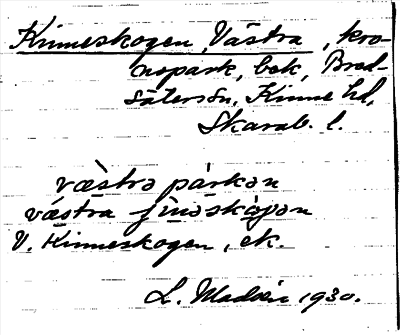 Kinneskogen, Västra, kro-
nopark, bek, Bred-
sätersn, Kinne hd,
Skarab. l.
væ̀strə pàrkən
västra
V. Kinneskogen, ek.
L. 1930.